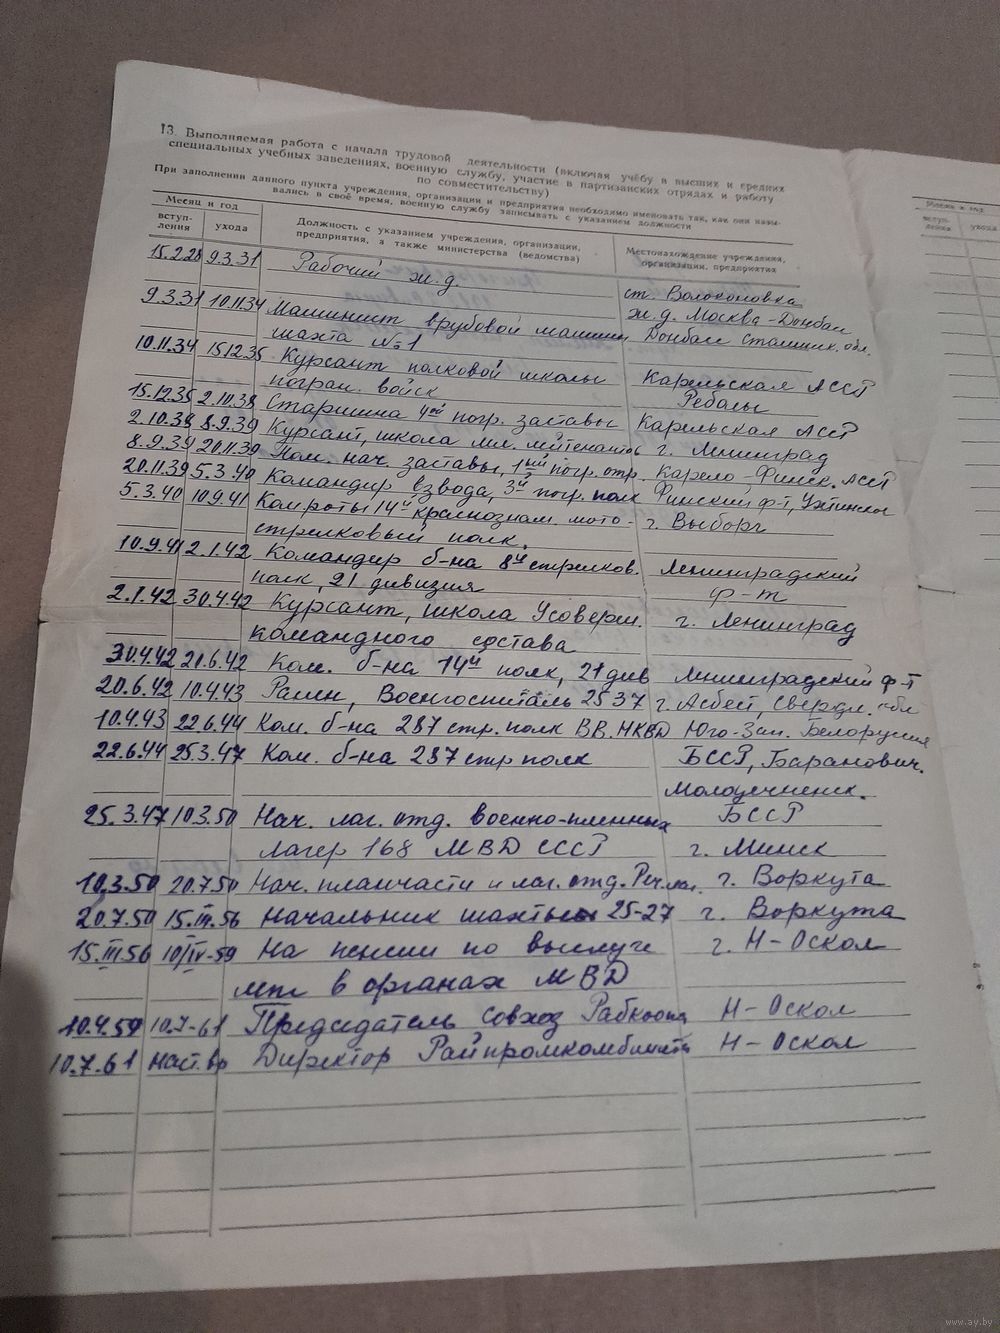 13. Выполняемая работа с начала трудовой деятельности (включая учёбу в высших и средних
специальных учебных заведениях, военную службу, участие в партизанских отрядах и работу
по совместительству)
При заполнении данного пункта учреждения, организации и предприятия необходимо именовать так, как они назы-
вались в своё время, военную службу записывать с указанием должности
Месяц и год
вступ-
ления
ухода
Должность с указанием учреждения, организации,
предприятия, а также министерства (ведомства)
Местонахождение учреждения,
организации, предприятия
15.2.28 9.3.31 Рабочий ж.д. ст. Волоконовка
ж.д. Москва-Донбас
9.3.31 10.11.34 Машинист врубовой машины Донбас Сталинск. обл.
шахта №1
10.11.34 15.12.35 Курсант полковой школы Карельская АССР
погран. войск Реболы
15.12.35 2.10.38 Старшина 4ой погр. заставы Карельская АССР
2.10.38 8.9.39 Курсант, школа мл. лейтенантов г. Ленинград
8.9.39 20.11.39 Пом. нач. заставы, 1ый погр. отр. Карело-Финск. АССР
20.11.39 5.3.40 Командир взвода, 3й погр. полк Финский ф-т,
5.3.40 10.9.41 Ком. роты 14й Краснознам. мото- г. Выборг
стрелковый полк.
10.9.41 2.1.42 Командир б-на 8й стрелков. Ленинградский
полк, 21 дивизия ф-т
2.1.42 30.4.42 Курсант, школа Усоверш. г. Ленинград
командного состава
30.4.42 21.6.42 Ком. б-на 14й полк, 21 див Ленинградский ф-т
20.6.42 10.4.43 Ранен, Военгоспиталь 2537 г. Асбест, Свердл. обл
10.4.43 22.6.44 Ком. б-на 287 стр. полк ВВ. НКВД Юго-Зап. Белоруссия
22.6.44 25.3.47 Ком. б-на 287 стр полк БССР, Баранович.
Молодечненск.
25.3.47 10.3.50 Нач. лаг. отд. военно-пленных БССР
лагер 168 МВД СССР г. Минск
10.3.50 20.7.50 Нач. планчасти и лаг. отд. Реч. лаг. г. Воркута
20.7.50 15.III.56 Начальник шахты 25-27 г. Воркута
15.III.56 10/IV-59 На пенсии по выслуге г. Н-Оскол
лет в органах МВД
10.4.59 10.7-61 Председатель Совхоз Рабкоопа Н-Оскол
10.7.61 наст. вр Директор Райпромкомбината Н-Оскол
Месяц и год
вступ-
ления
ухода
www.ay.by